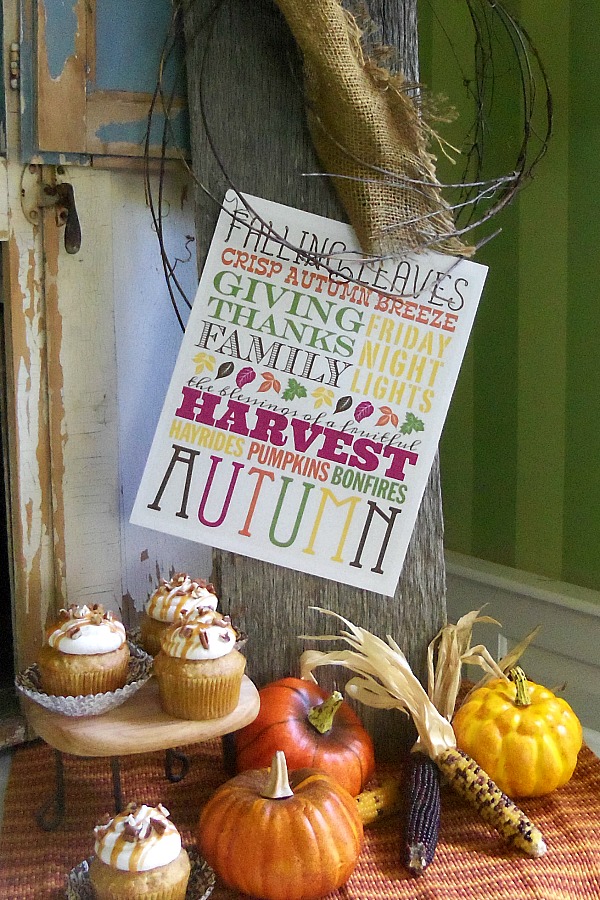 FALLING LEAVES
CRISP AUTUMN BREEZE
GIVING
THANKS
FAMILY
FRIDAY
NIGHT
LIGHTS
the blessings of a fruitful
HARVEST
HAYRIDES PUMPKINS BONFIRES
AUTUMN